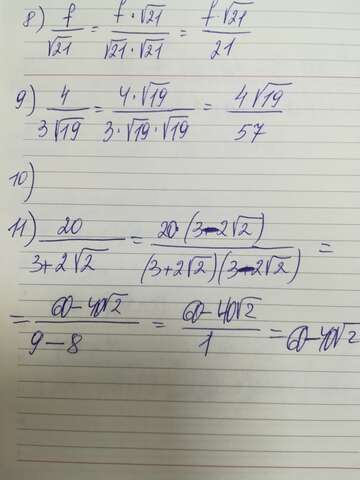 8) f/√21 = f·√21/√21·√21 = f·√21/21
9) 4/3√19 = 4·√19/3·√19·√19 = 4√19/57
10)
11) 20/3+2√2 = 20·(3-2√2)/(3+2√2)(3-2√2) =
= 60-40√2/9-8 = 60-40√2/1 = 60-40√2